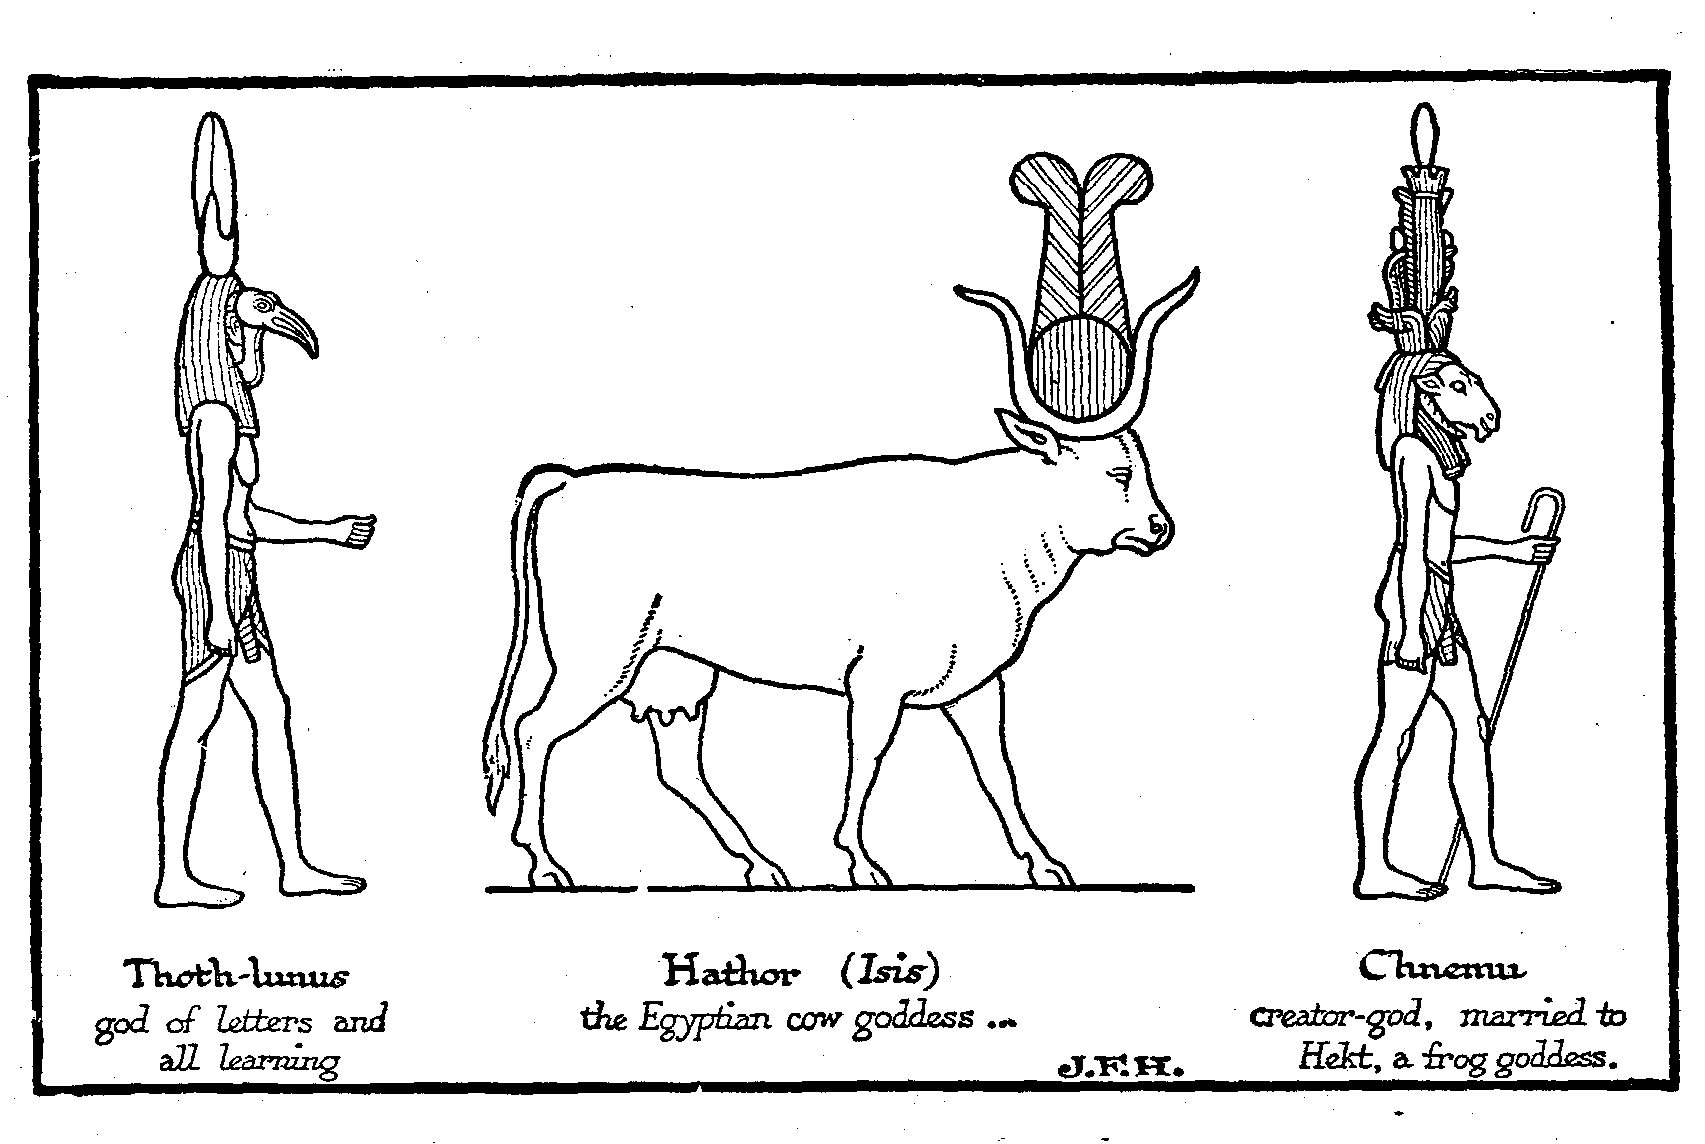 Thoth-lunus
god of letters and
all learning
Hathor (Isis)
the Egyptian cow goddess ...
J.F.H.
Chnemu
creator-god, married to
Hekt, a frog goddess.